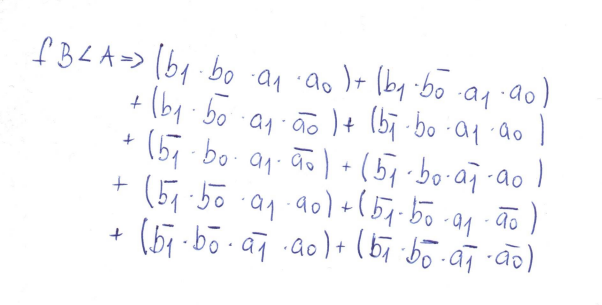 f B<A => (b1 · b0 · a1 · a0) + (b1 · b̅0̅ · a1 · a0)
+ (b1 · b̅0̅ · a1 · a̅0̅) + (b̅1̅ · b0 · a1 · a0)
+ (b̅1̅ · b0 · a1 · a̅0̅) + (b̅1̅ · b0 · a̅1̅ · a0)
+ (b̅1̅ · b̅0̅ · a1 · a0) + (b̅1̅ · b̅0̅ · a1 · a̅0̅)
+ (b̅1̅ · b̅0̅ · a̅1̅ · a0) + (b̅1̅ · b̅0̅ · a̅1̅ · a̅0̅)